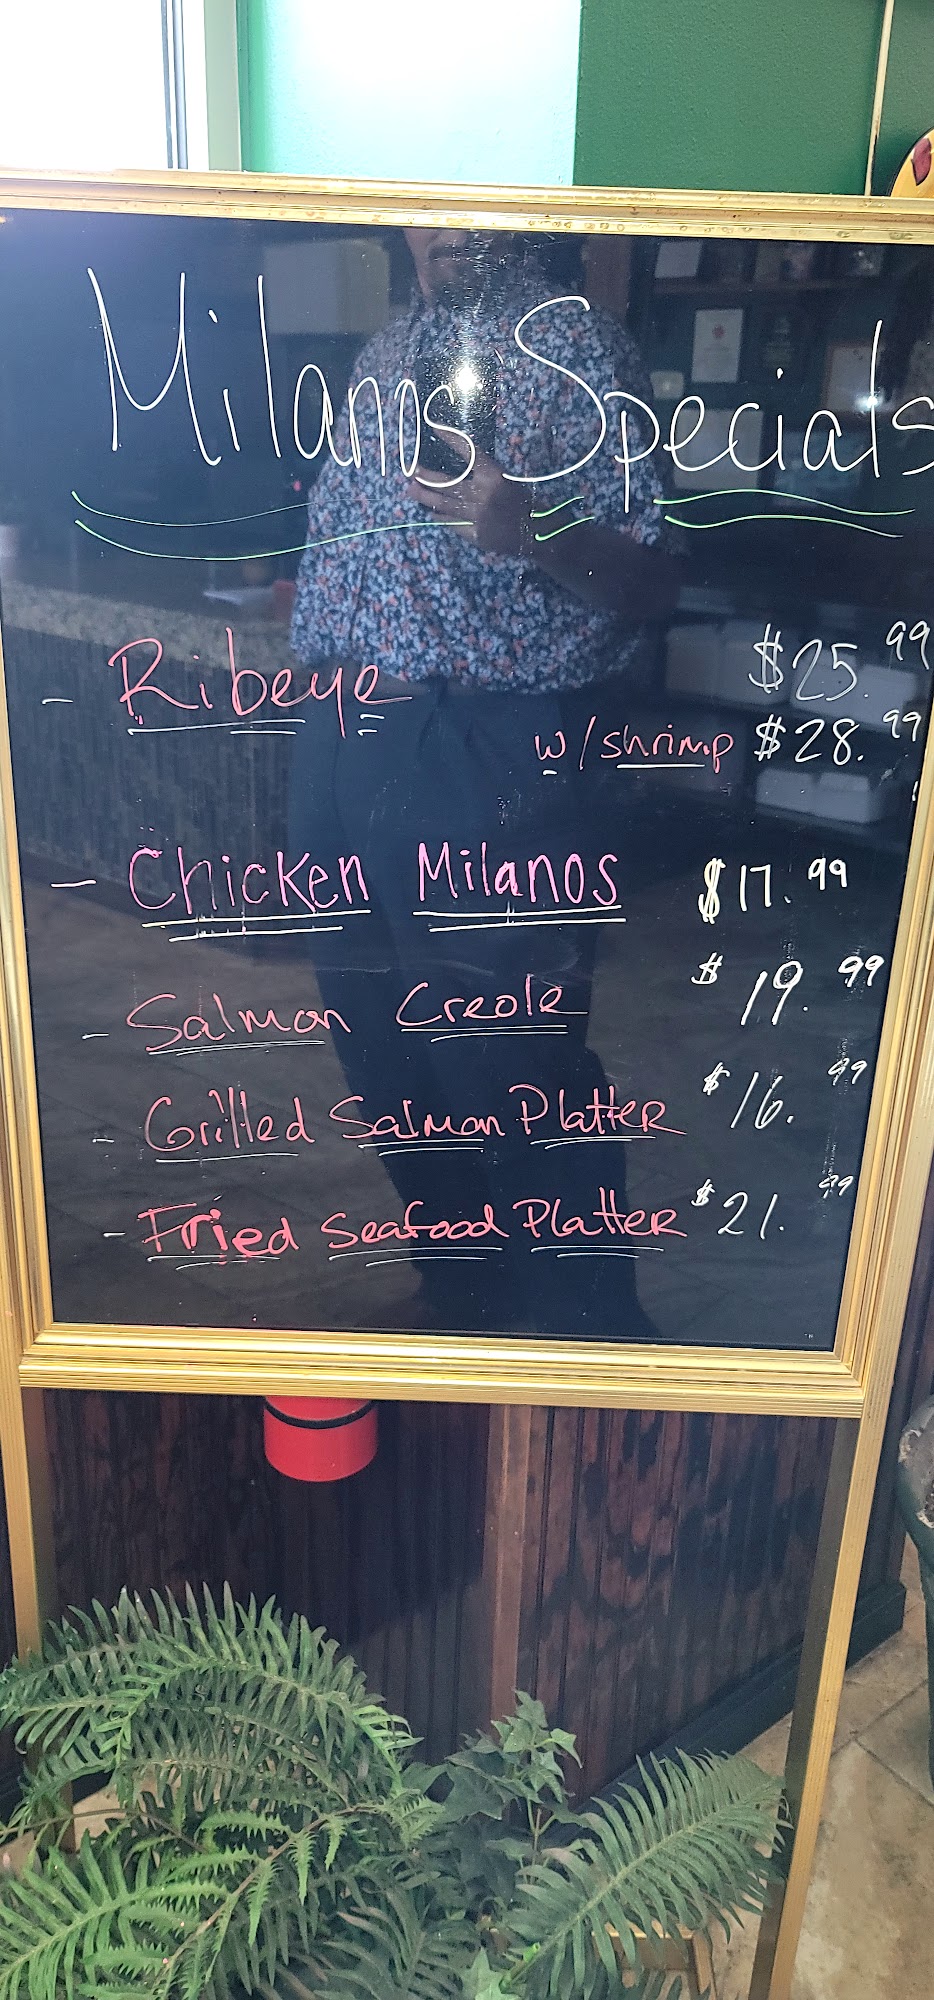 Milanos Specials
- Ribeye $25.99
w/shrimp $28.99
- Chicken Milanos $17.99
- Salmon Creole $19.99
- Grilled Salmon Platter $16.99
- Fried Seafood Platter $21.99